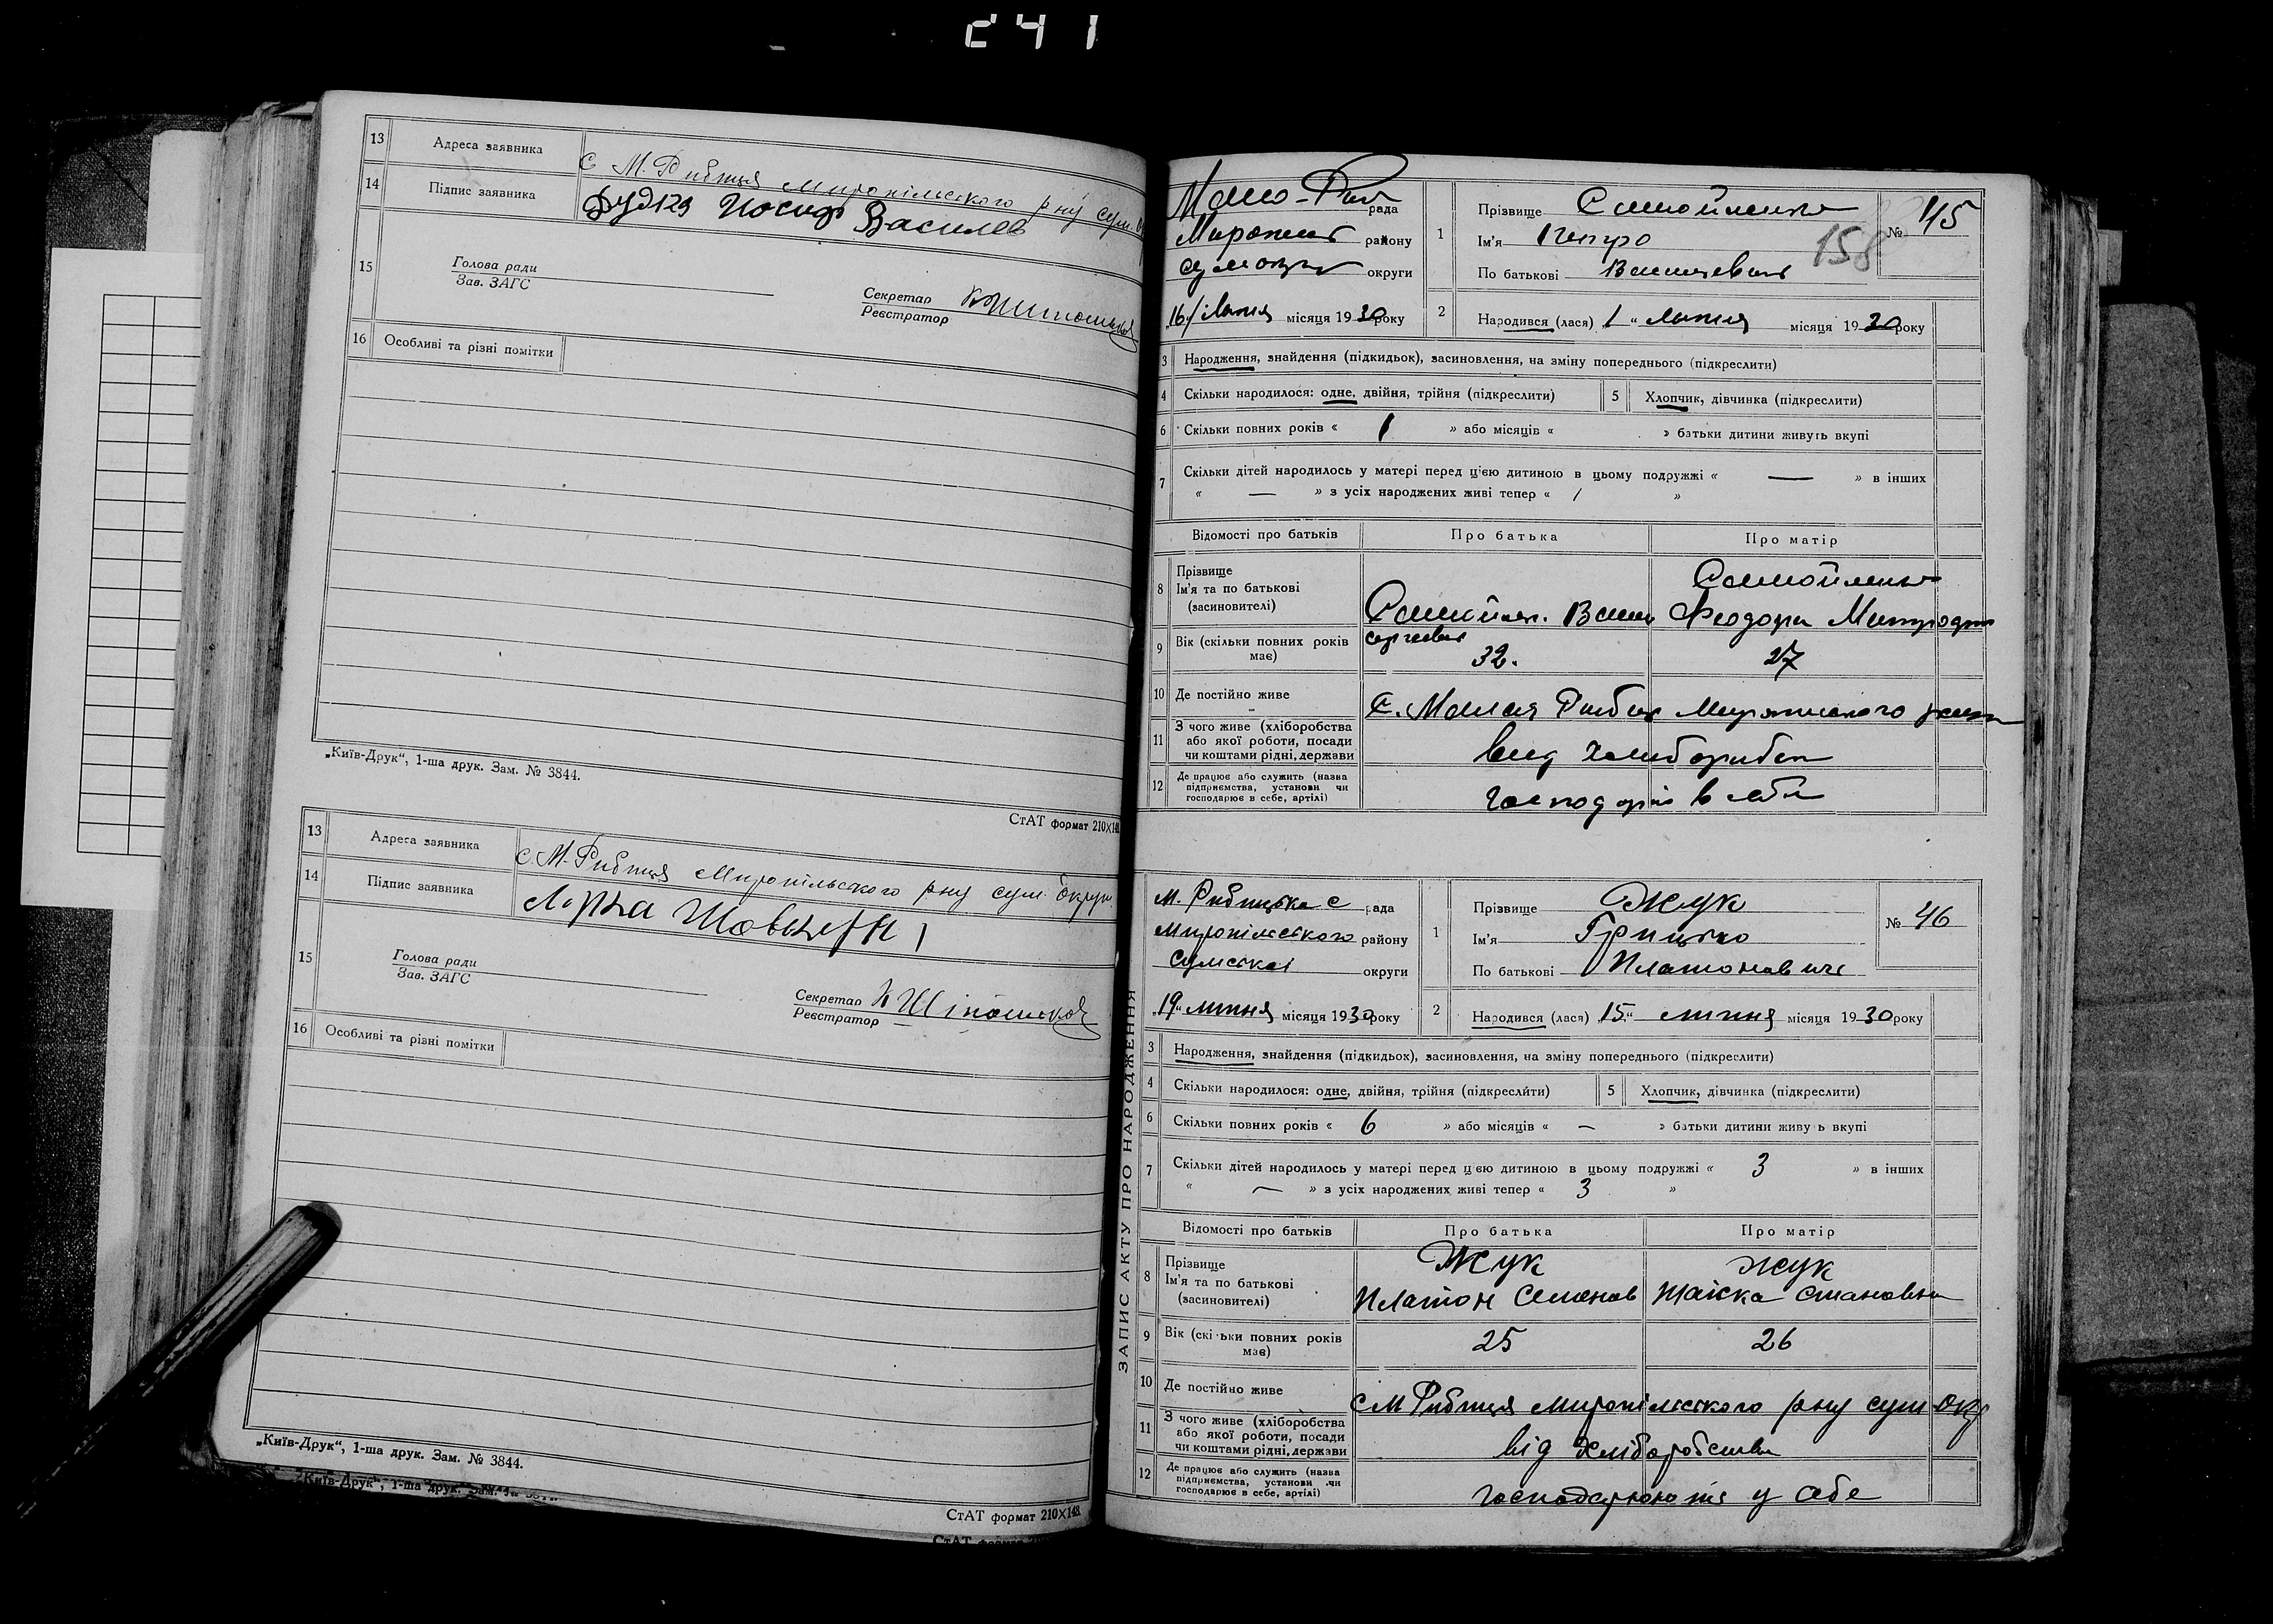 241
13 Адреса заявника с М. Рибиця Миропільського рну сум.
14 Підпис заявника Дудка Йосиф Василев
15 Голова ради
Зав. ЗАГС
Секретар
Реєстратор
16 Особливі та різні помітки
„Київ-Друк“, 1-ша друк. Зам. № 3844.
СтАТ формат 210×148
13 Адреса заявника с. М-Рибиця Миропільського рну сум. округ.
14 Підпис заявника
15 Голова ради
Зав. ЗАГС
Секретар
Реєстратор
16 Особливі та різні помітки
„Київ-Друк“, 1-ша друк. Зам. № 3844.
СтАТ формат 210×148
„Київ-Друк“, 1-ша друк. Зам. №
СтАТ
Мало-Риб рада
району
округи
16 липня місяця 1930 року
1 Прізвище Самойленко
Ім'я Петро
По батькові Васильевич
№ 45
158
2 Народився (лася) 1 " липня місяця 1930 року
3 Народження, знайдення (підкидьок), засиновлення, на зміну попереднього (підкреслити)
4 Скільки народилося: одне, двійня, трійня (підкреслити) 5 Хлопчик, дівчинка (підкреслити)
6 Скільки повних років « 1 » або місяців « » батьки дитини живуть вкупі
7 Скільки дітей народилось у матері перед цією дитиною в цьому подружжі « — » в інших
« — » з усіх народжених живі тепер « 1 »
Відомості про батьків Про батька Про матір
8 Прізвище
Ім'я та по батькові
(засиновителі)
Самойлен. Васил
Сергеевич
Самойленко
Феодора Митрофан
9 Вік (скільки повних років має) 32. 27
10 Де постійно живе с. Малая Рибиц
11 З чого живе (хліборобства
або якої роботи, посади
чи коштами рідні, держави
12 Де працює або служить (назва
підприємства, установи чи
господарює в себе, артілі)
ЗАПИС АКТУ ПРО НАРОДЖЕННЯ
М. Рибицька с рада
Миропільського району
Сумської округи
"19" липня місяця 1930 року
1 Прізвище Жук
Ім'я Грицько
По батькові Платонович
№ 46
2 Народився (лася) „15“ липня місяця 1930 року
3 Народження, знайдення (підкидьок), засиновлення, на зміну попереднього (підкреслити)
4 Скільки народилося: одне, двійня, трійня (підкреслити) 5 Хлопчик, дівчинка (підкреслити)
6 Скільки повних років « 6 » або місяців « — » батьки дитини живу ь вкупі
7 Скільки дітей народилось у матері перед цією дитиною в цьому подружжі « 3 » в інших
« — » з усіх народжених живі тепер « 3 »
Відомості про батьків Про батька Про матір
8 Прізвище
Ім'я та по батькові
(засиновителі)
Жук
Платон Семенов
Жук
9 Вік (скільки повних років має) 25 26
10 Де постійно живе с М Рибиця Миропільського рну сум окр
11 З чого живе (хліборобства
або якої роботи, посади
чи коштами рідні, держави
від хліборобства
12 Де працює або служить (назва
підприємства, установи чи
господарює в себе, артілі)
у себе